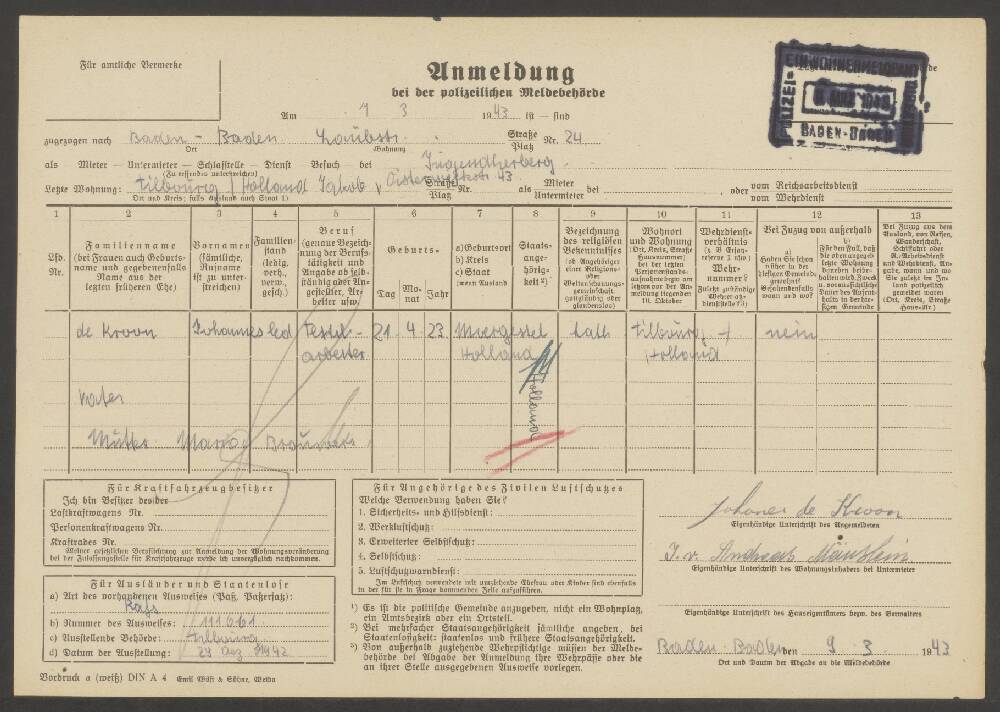 Für amtliche Vermerke
Anmeldung
bei der polizeilichen Meldebehörde
EINWOHNERMELDEAMT
POLIZEI-
BADEN-BADEN
Am 9 3 1943 ist — sind
zugezogen nach Baden-Baden Straße Nr. 24
Ort Wohnung Platz
als — Mieter — Untermieter — Schlafstelle — Dienst Besuch — bei Jugendherberg.
(Zutreffendes unterstreichen)
Letzte Wohnung: Tilbourg / Holland Jakob v 43 Straße Platz Nr. als Mieter Untermieter bei , oder vom Reichsarbeitsdienst vom Wehrdienst
Ort und Kreis; falls Ausland auch Staat 1)
1 2 3 4 5 6 7 8 9 10 11 12 13
Lfd. Nr.
Familienname (bei Frauen auch Geburtsname und gegebenenfalls Name aus der letzten früheren Ehe)
Vornamen (sämtliche, Rufname ist zu unterstreichen)
Familienstand (ledig, verh., verw., gesch.)
Beruf (genaue Bezeichnung der Berufstätigkeit und Angabe ob selbständig oder Angestellter, Arbeiter usw.)
Geburts-
Tag Monat Jahr
a) Geburtsort b) Kreis c) Staat (wenn Ausland)
Staatsangehörigkeit ²)
Bezeichnung des religiösen Bekenntnisses (ob Angehöriger einer Religions- oder Weltanschauungsgemeinschaft, gottgläubig oder glaubenslos)
Wohnort und Wohnung (Ort, Kreis, Straße, Hausnummer) bei der letzten Personenstandsaufnahme bzw. am letzten vor der Anmeldung liegenden 10. Oktober
Wehrdienstverhältnis (z. B. Ersatzreserve I usw.) Wehrnummer? Zuletzt zuständige Wehrersatzdienststelle ³)
Bei Zuzug von außerhalb
a) Haben Sie schon früher in der hiesigen Gemeinde gewohnt? wann und wo?
b) Für den Fall, daß
Bei Zuzug aus dem Ausland, von Reisen, Wanderschaft, Schiffahrt oder R.-Arbeitsdienst und Wehrdienst, Angabe, wann und wo Sie zuletzt im Inland polizeilich gemeldet waren (Ort, Kreis, Straße Haus-Nr.)
de Kroon Johannes led Textilarbeiter 21 4 23 Moergestel Holland Holland kath Tilburg / Holland nein
Vater
Mutter Maria
Für Kraftfahrzeugbesitzer
Ich bin Besitzer des/der
Lastkraftwagens Nr.
Personenkraftwagens Nr.
Kraftrades Nr.
Meiner gesetzlichen Verpflichtung zur Anmeldung der Wohnungsveränderung
bei der Zulassungsstelle für Kraftfahrzeuge werde ich unverzüglich nachkommen.
Für Ausländer und Staatenlose
a) Art des vorhandenen Ausweises (Paß, Paßersatz):
Pass
b) Nummer des Ausweises: 111661
c) Ausstellende Behörde: Tilbourg
d) Datum der Ausstellung: 29 Dez 1942
Vordruck a (weiß) DIN A 4 Emil Wüst & Söhne, Weida
Für Angehörige des Zivilen Luftschutzes
Welche Verwendung haben Sie?
1. Sicherheits- und Hilfsdienst:
2. Werkluftschutz:
3. Erweiterter Selbstschutz:
4. Selbstschutz:
5. Luftschutzwarndienst:
Im Luftschutz verwendete mit umziehende Ehefrau oder Kinder sind ebenfalls
in der für sie in Frage kommenden Zeile aufzuführen.
¹) Es ist die politische Gemeinde anzugeben, nicht ein Wohnplatz,
ein Amtsbezirk oder ein Ortsteil.
²) Bei mehrfacher Staatsangehörigkeit sämtliche angeben, bei
Staatenlosigkeit: staatenlos und frühere Staatsangehörigkeit.
³) Von außerhalb zuziehende Wehrpflichtige müssen der Meldebehörde
bei Abgabe der Anmeldung ihre Wehrpässe oder die
an ihrer Stelle ausgegebenen Ausweise vorlegen.
Johanes de Kroon
Eigenhändige Unterschrift des Angemeldeten
J. v. Andreas
Eigenhändige Unterschrift des Wohnungsinhabers bei Untermieter
Eigenhändige Unterschrift des Hauseigentümers bezw. des Verwalters
Baden-Baden den 9 3 1943
Ort und Datum der Abgabe an die Meldebehörde